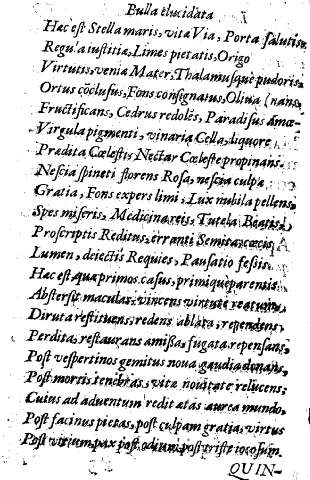 Bulla elucidata
Hac est Stella maris, vitæ Via, Porta salutis,
Regula iustitiæ, Limes pietatis, Origo
Virtutis, veniæ Mater, Thalamusque pudoris,
Ortus cōclusus, Fons consignatus, Oliua (nans,
Fructificans, Cedrus redolēs, Paradisus Amœ-
Virgula pigmenti, vinaria Cella, liquore
Prædita Cœlesti, Nectar Cœleste propinans.
Nescia spineti florens Rosa, nescia culpæ
Gratia, Fons expers limi, Lux nubila pellens,
Spes miseris, Medicina reis, Tutela Beatis,
Proscriptis Reditus, erranti Semita, cæcis
Lumen, deiectis Requies, Pausatio fessis.
Hac est, quæ primos casus, primique parentis
Abstersit maculas, vincens virtute reatum,
Diruta restituens, redens ablata, rependens
Perdita, restaurans amissa, fugata repensans,
Post vespertinos gemitus noua gaudia donans,
Post mortis tenebras, vitæ nouitate relucens;
Cuius ad aduentum redit ætas aurea mundo,
Post facinus pietas, post culpam gratia, virtus
Post vitium, pax post odium, post triste iocosum.
QUIN-